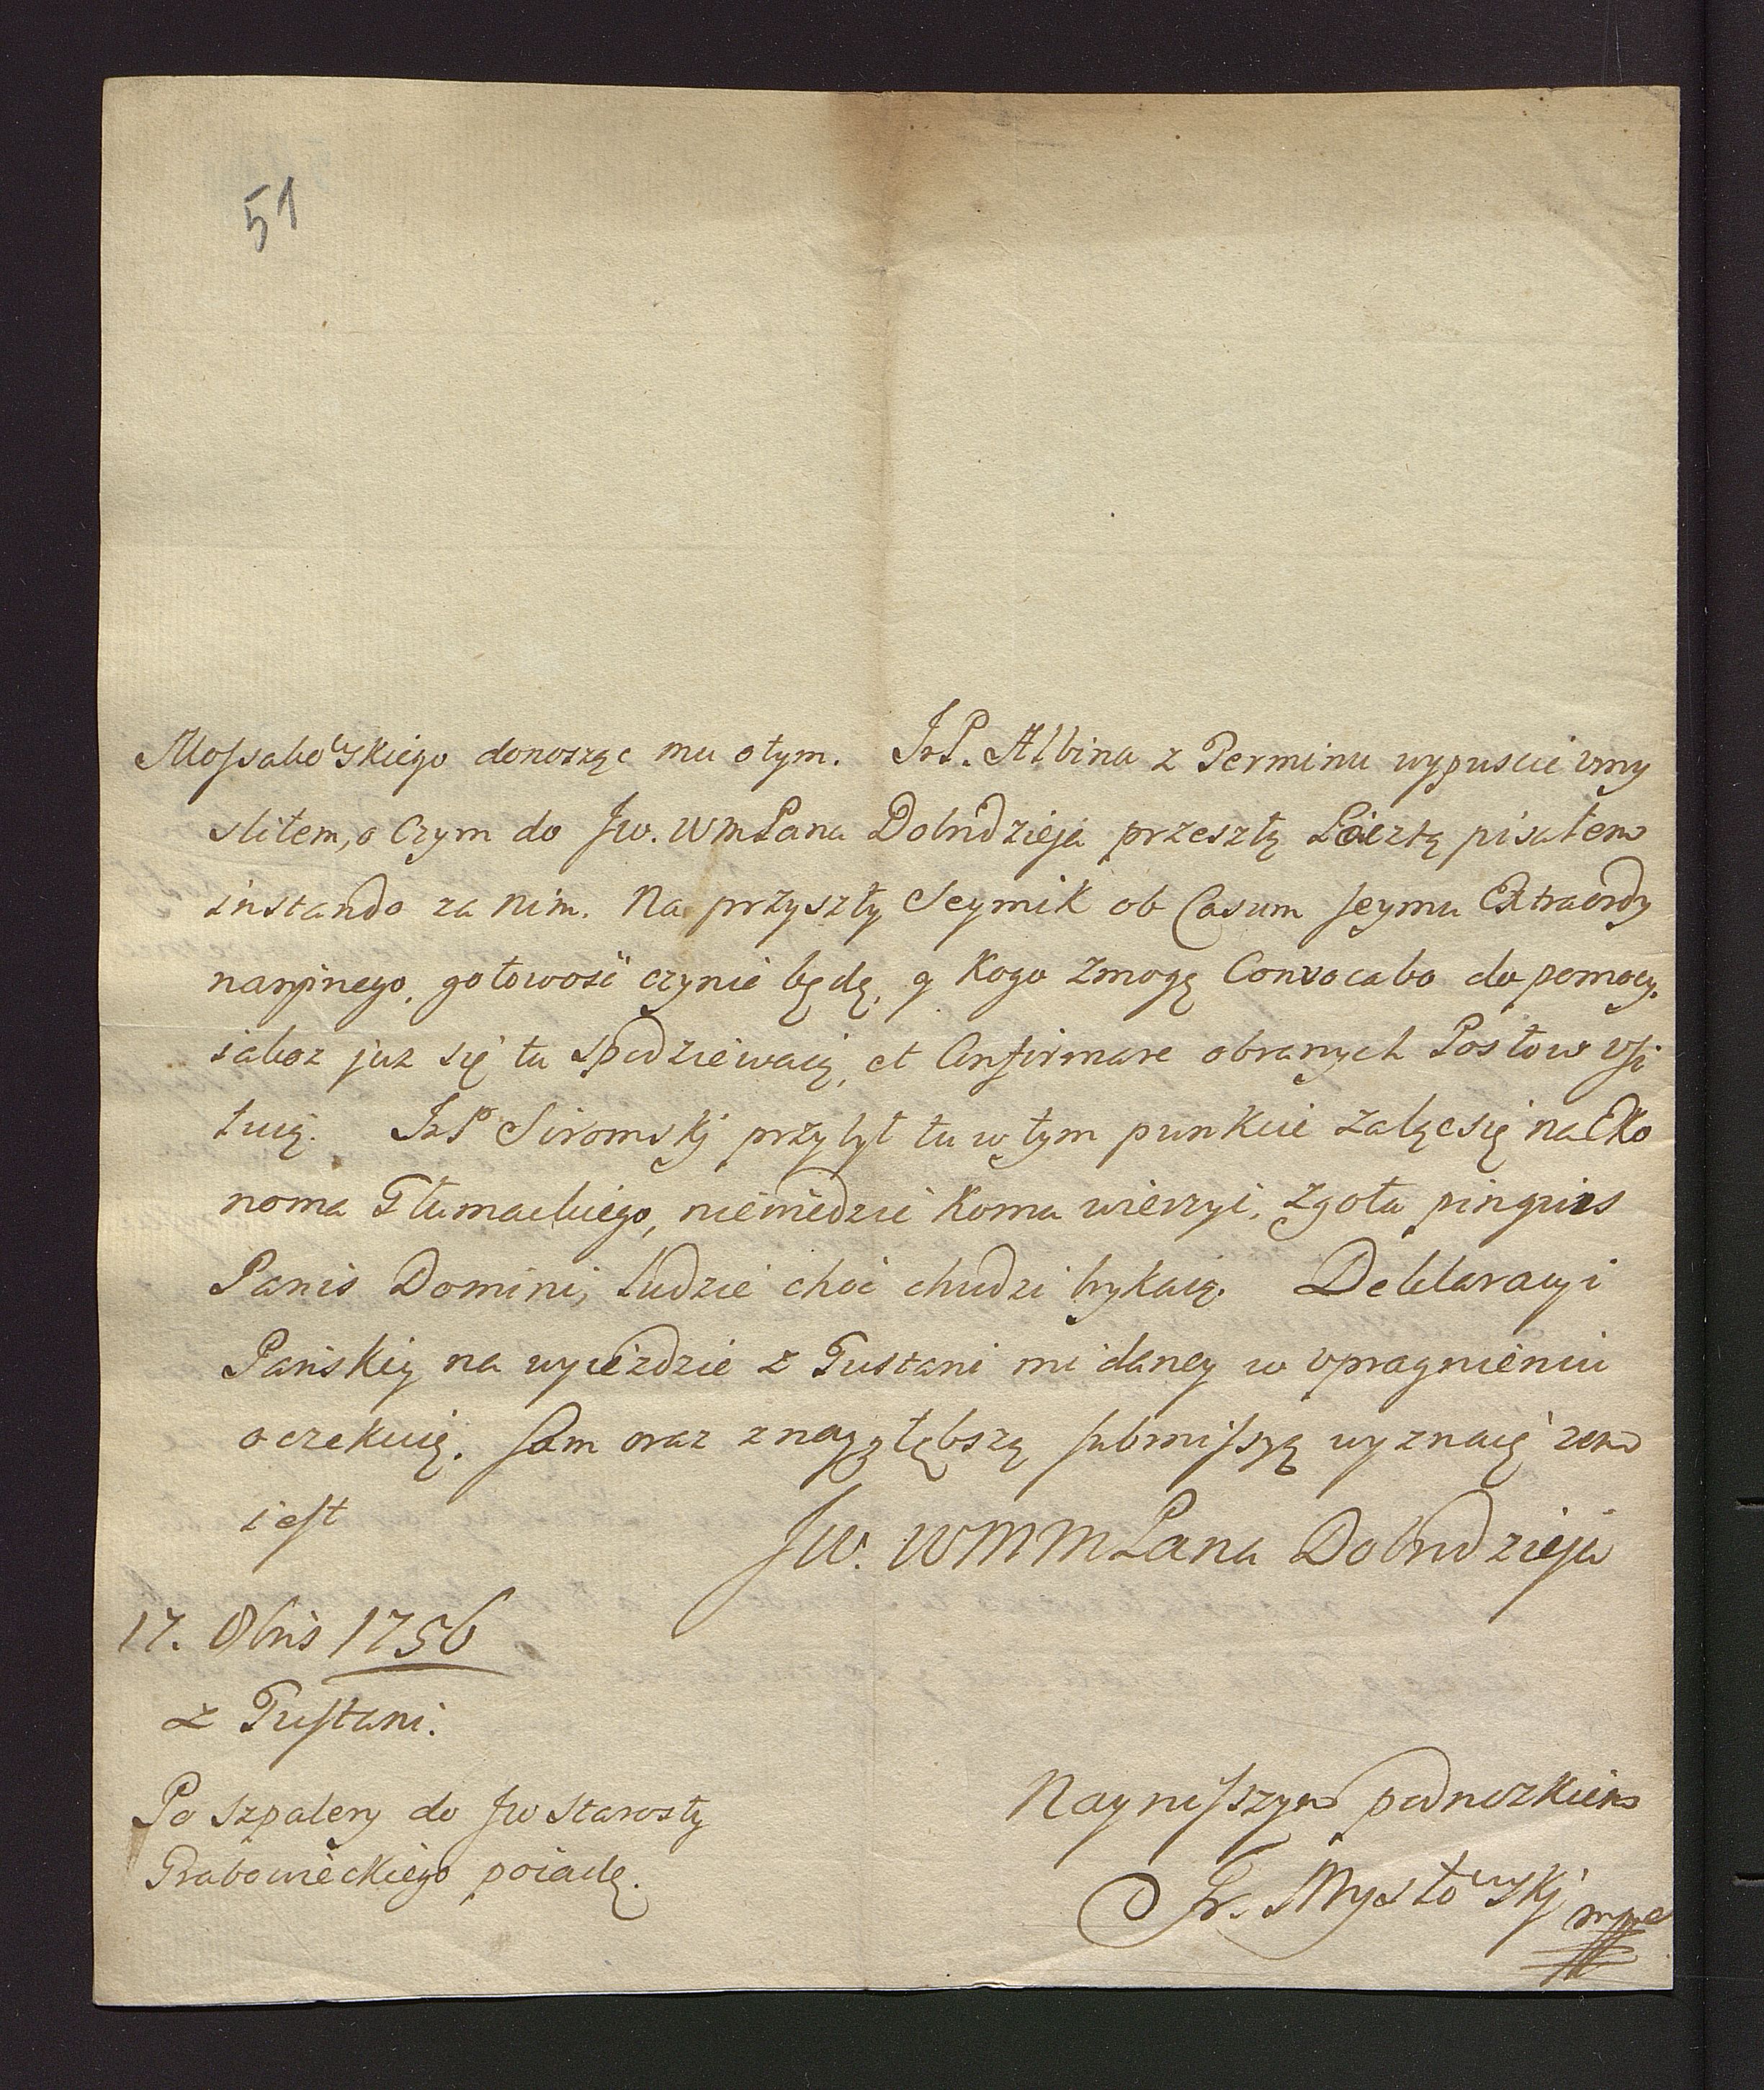 51
Mossakowskiego donosząc mu o tym. JxP. Albina z Terminu wypuscić vmy
sliłem, o Czym do Jw. WmPana Dobrdzieja przeszłą Pocztą pisałem
instando za nim. Na przyszły Seymik ob Casum Seymu Extraordy
naryinego, gotowość czynić będę, y Kogo zmogę Convocabo do pomocy.
iakoż już się tu spodziewaią, et Confirmare obranych Posłow Usi
łuią. JxP Siromskj przybył tu w tym punkcie żaląc się na Eko
noma Tłumackiego, niewiedzieć Komu wierzyć, zgoła pinguis
Panis Domini, Ludzie choć chudzi brykaią. Deklaracyi
Pańskiey na wyieździe z Tustani mi daney w vpragnieniu
oczekuię. Sam oraz z naygłębszą submissyą wyznaię żem
iest Jw. WMMPana Dobrdzieja
17. 8bris 1756
z Tustani.
Po szpalery do Jw Starosty
Grabowieckiego poiadę.
Nayniższym podnożkiem
Fr. Mysłowskj mppa